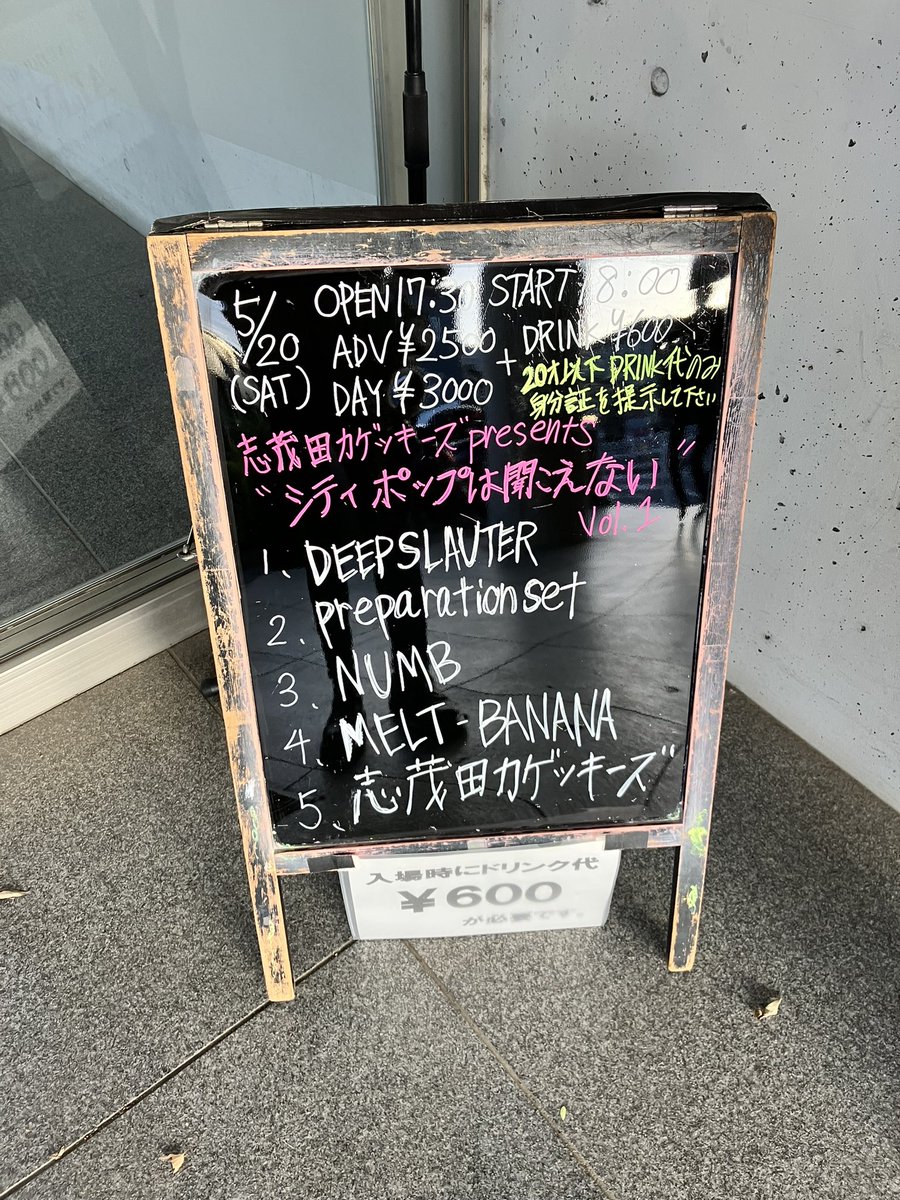 5/20 (SAT)
OPEN 17:30 START 18:00
ADV ¥2500 + DRINK ¥600
DAY ¥3000
20才以下 DRINK代のみ
身分証を提示して下さい
志茂田カゲッキーズ presents
"シティポップは聞こえない"
vol.1
1、DEEPSLAUTER
2、preparationset
3、NUMB
4、MELT-BANANA
5、志茂田カゲッキーズ
入場時にドリンク代
¥600
が必要です。